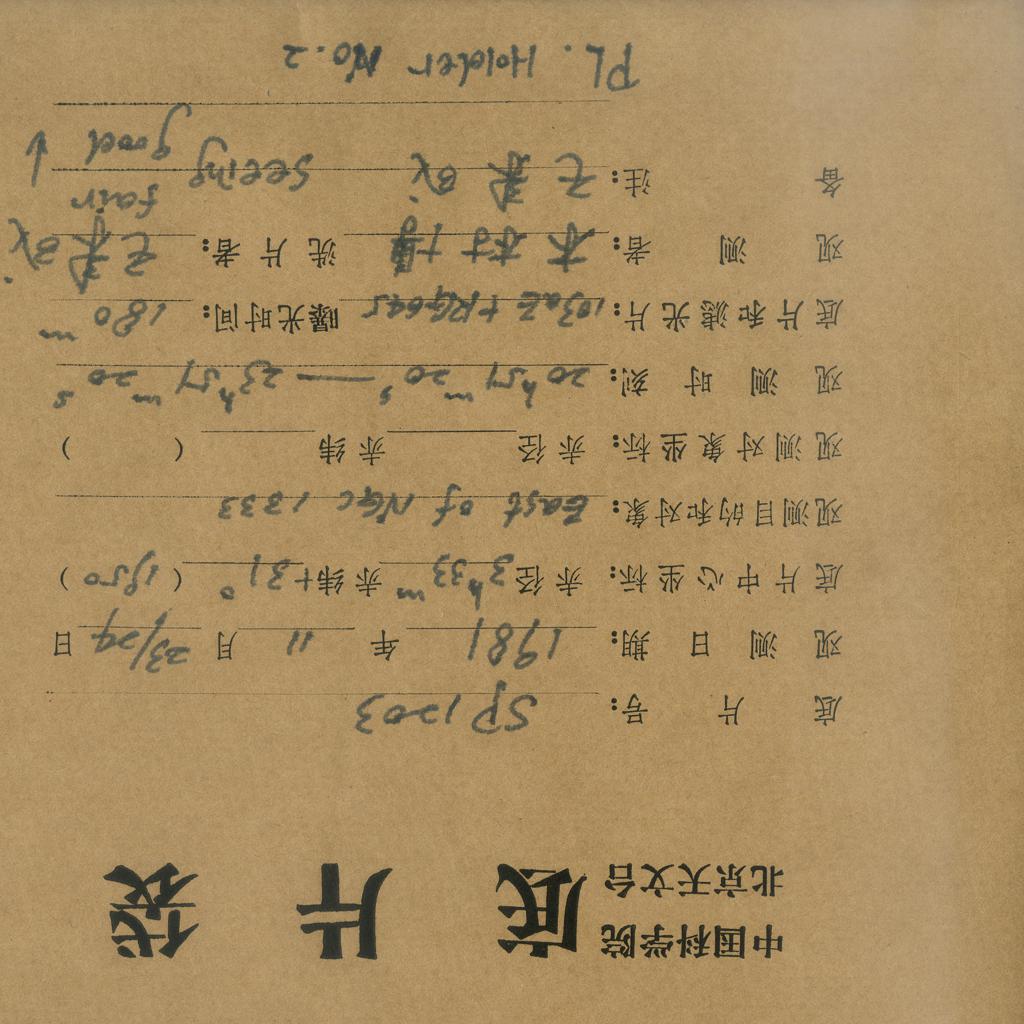 中国科学院
北京天文台
底片袋
底片号: SP1203
观测日期: 1981年11月23/24日
底片中心坐标: 赤径3h33m赤纬+31°(1950)
观测目的和对象: East of NGC 1333
观测对象坐标: 赤径 赤纬 ( )
观测时刻: 20h57m20s — 23h57m20s
底片和滤光片: 103aE+RG645 曝光时间: 180m
观测者: 洗片者:
fair
备注: seeing ↓
good
PL. Holder No.2